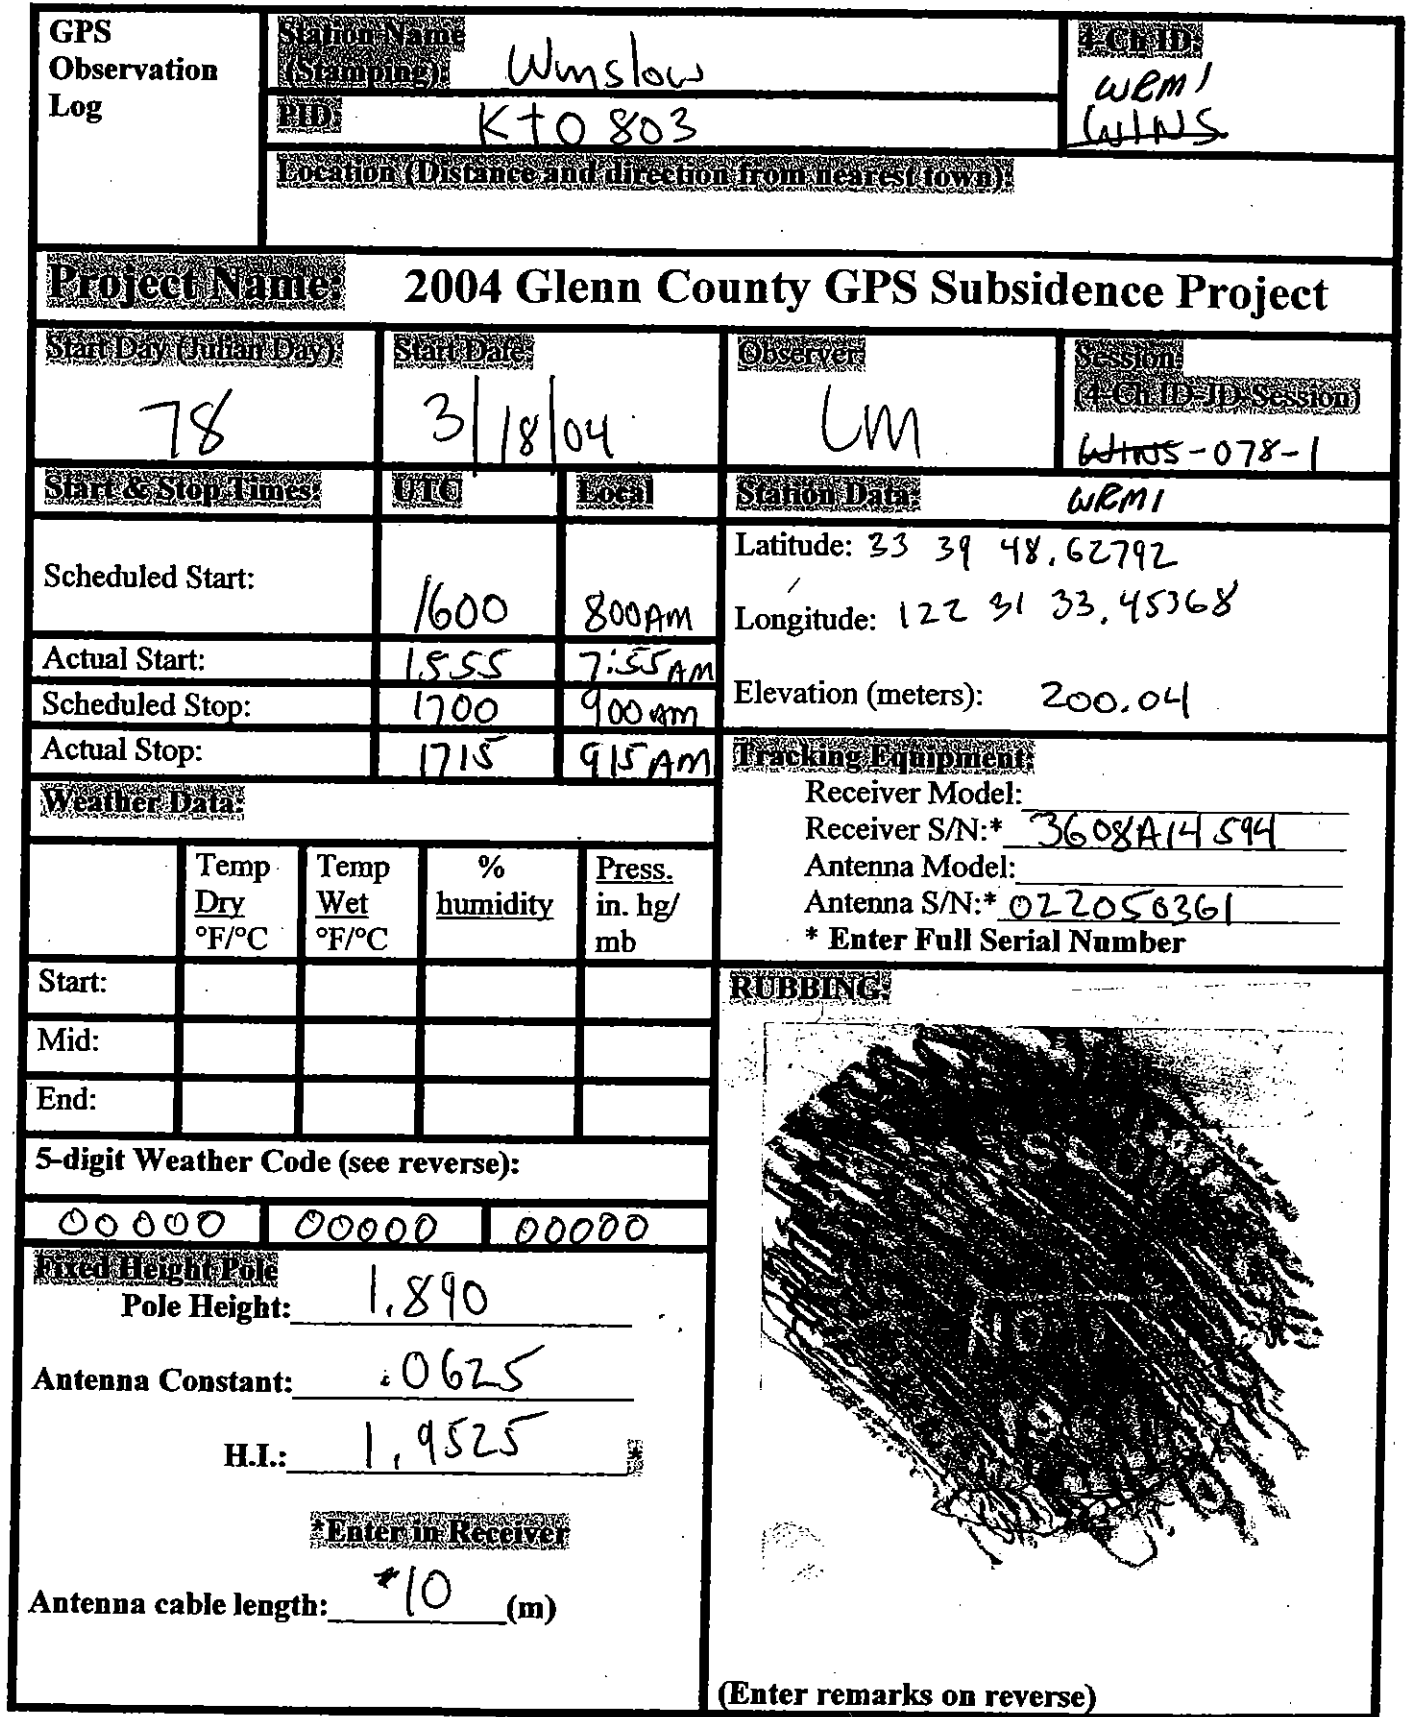 GPS
Observation
Log
Station Name
(Stamping): Winslow
PID: Kt0803
4-Ch ID:
WRM1
WINS
Location (Distance and direction from nearest town):
Project Name: 2004 Glenn County GPS Subsidence Project
Start Day (Julian Day):
78
Start Date:
3/18/04
Observer:
LM
Session:
(4-Ch ID-JD-Session)
WINS-078-1
WRM1
Start & Stop Times: UTC Local
Scheduled Start: 1600 800AM
Actual Start: 1555 7:55AM
Scheduled Stop: 1700 900 am
Actual Stop: 1715 915 AM
Station Data:
Latitude: 33 39 48.62792
Longitude: 122 31 33.45368
Elevation (meters): 200.04
Tracking Equipment:
Receiver Model:
Receiver S/N:* 3608A14594
Antenna Model:
Antenna S/N:* 022050361
* Enter Full Serial Number
Weather Data:
Temp Dry °F/°C
Temp Wet °F/°C
% humidity
Press. in. hg/ mb
Start:
Mid:
End:
5-digit Weather Code (see reverse):
00000 00000 00000
Fixed Height Pole
Pole Height: 1.890
Antenna Constant: .0625
H.I.: 1.9525 *
*Enter in Receiver
Antenna cable length: *10 (m)
RUBBING:
(Enter remarks on reverse)